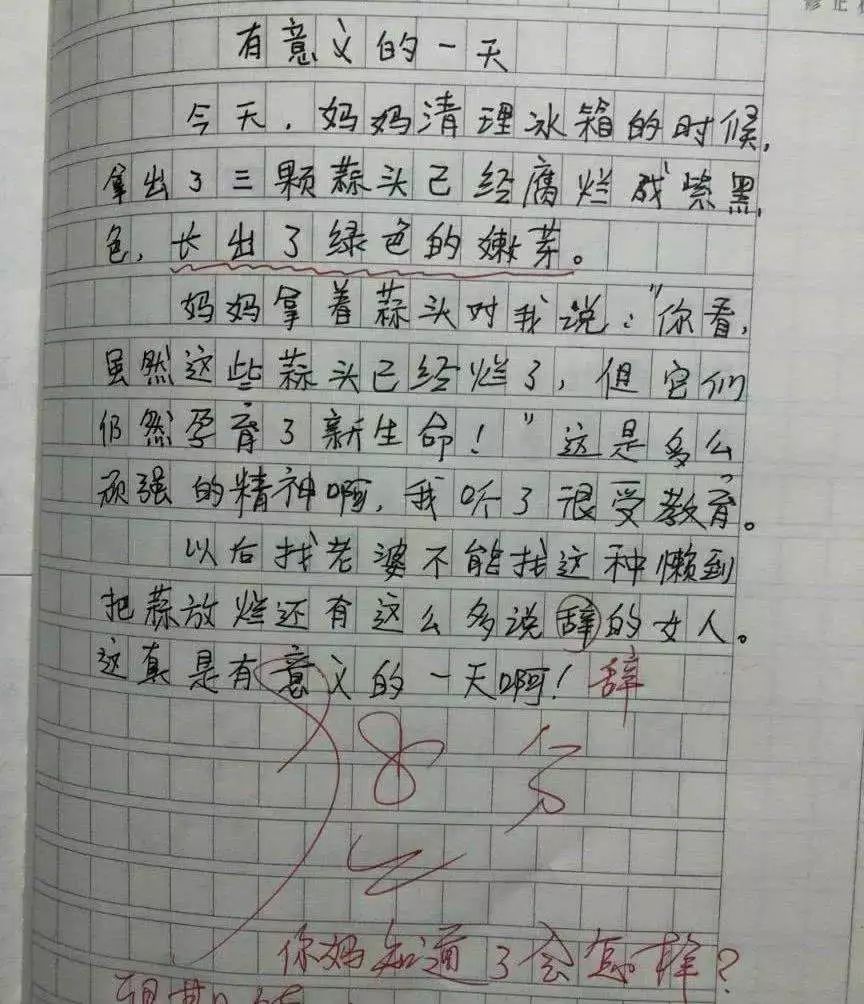 有意义的一天
今天,妈妈清理冰箱的时候,
拿出了三颗蒜头已经腐烂成紫黑
色,长出了绿色的嫩芽。
妈妈拿着蒜头对我说:"你看,
虽然这些蒜头已经烂了,但它们
仍然孕育了新生命!"这是多么
顽强的精神啊,我听了很受教育。
以后找老婆不能找这种懒到
把蒜放烂还有这么多说辞的女人。
这真是有意义的一天啊!辞
8分
你妈知道了会怎样?